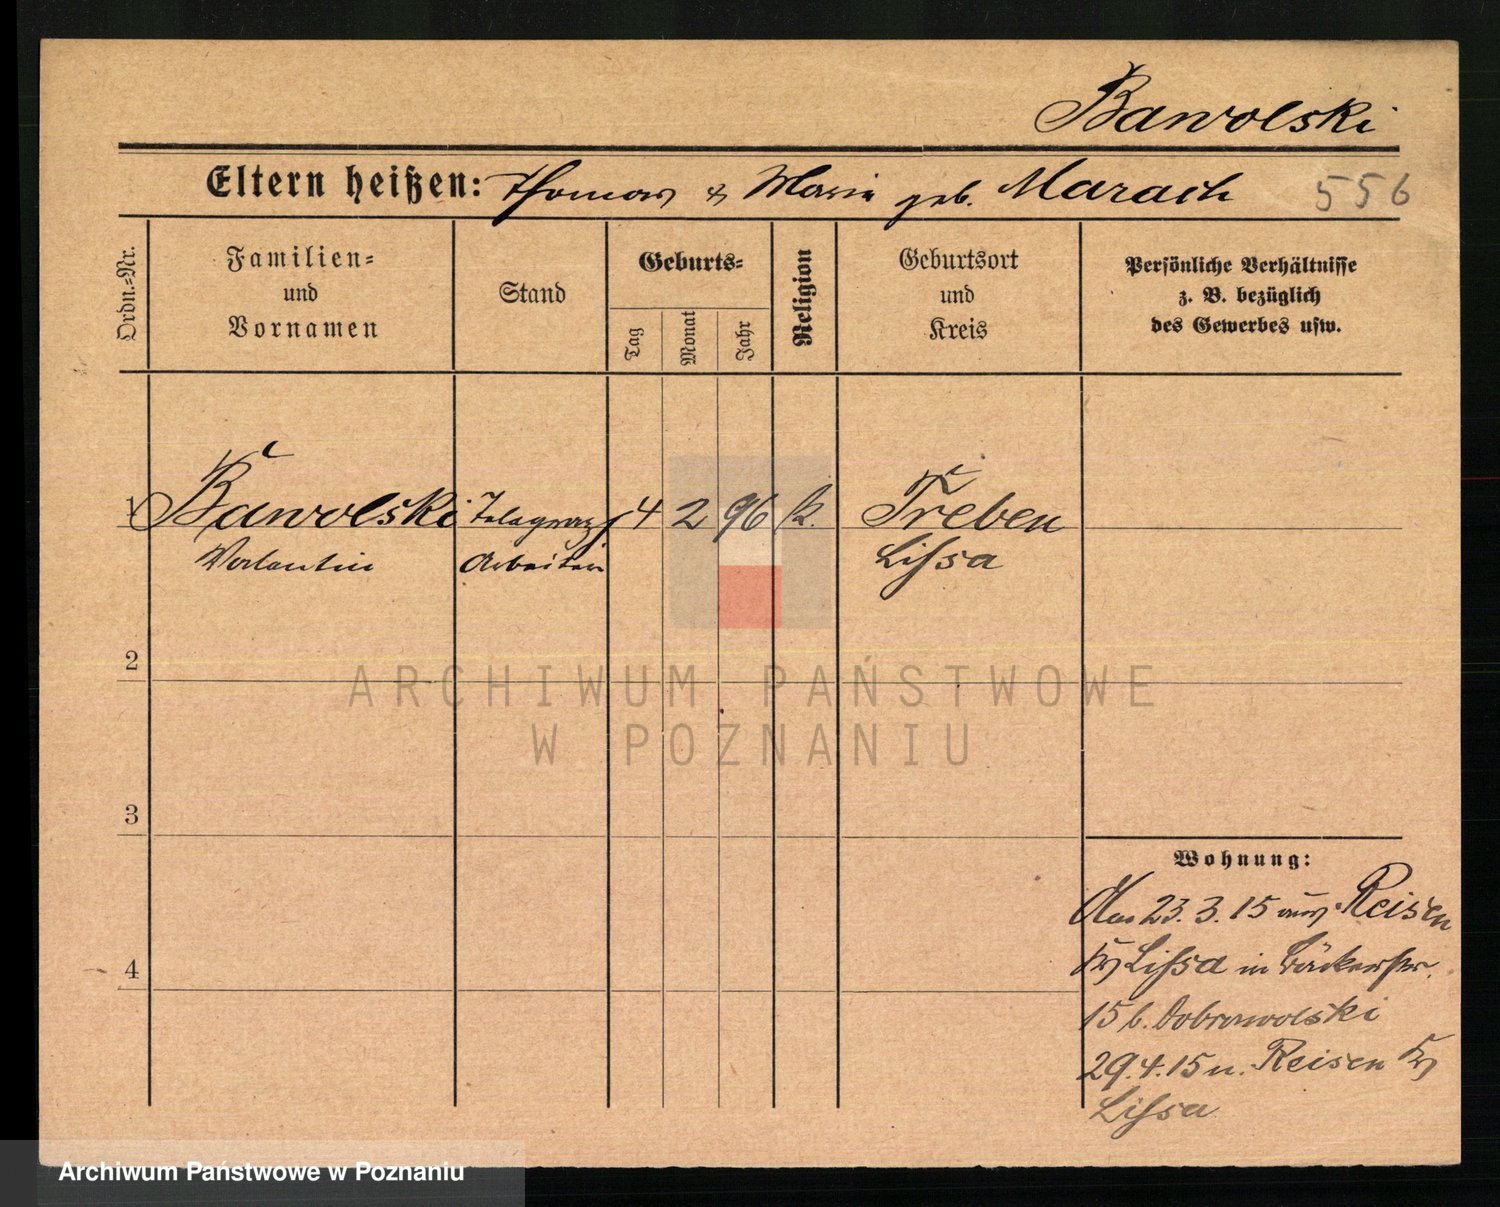 Bawolski
Eltern heißen: Thomas & Marie geb. Marach 556
Ordn.-Nr.
Familien-
und
Vornamen
Stand
Geburts-
Tag
Monat
Jahr
Religion
Geburtsort
und
Kreis
Persönliche Verhältnisse
z. B. bezüglich
des Gewerbes usw.
1 Bawolski Telegraf 4 2 96 k. Treben
Valentin Arbeiter Lissa
2
ARCHIWUM PAŃSTWOWE
W POZNANIU
3
Wohnung:
23. 3. 15 aus Reisen
4
Kr Lissa in Bäckerstr.
15 b. Dobrowolski
29.4.15 n. Reisen Kr
Lissa
Archiwum Państwowe w Poznaniu